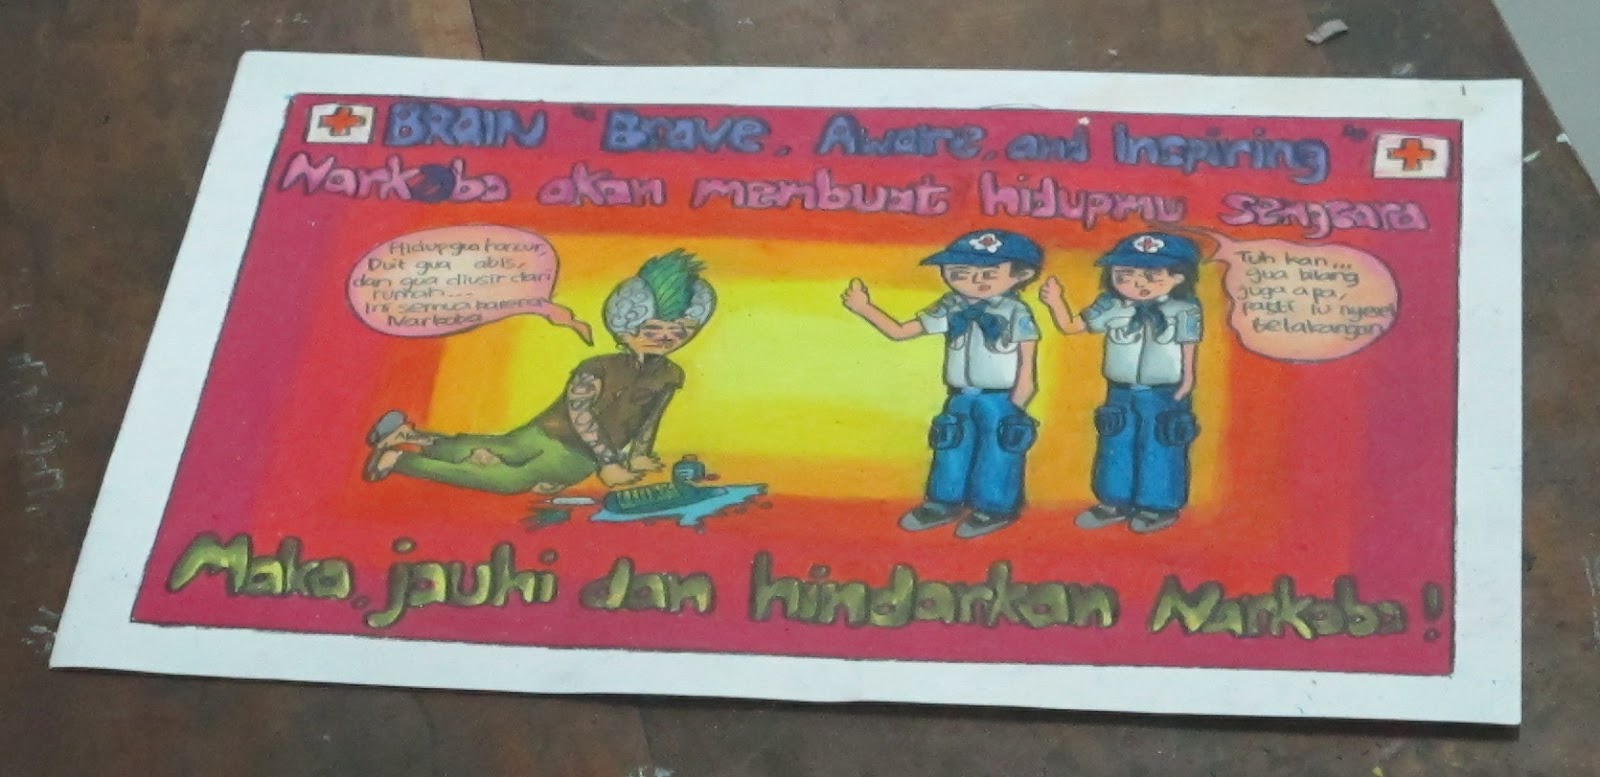 BRAIN "Brave, Aware, and Inspiring"
Narkoba akan membuat hidupmu sengsara
Hidup gua hancur,
Duit gua abis,
dan gua diusir dari
rumah...
Ini semua karena
Narkoba
Tuh kan...
gua bilang
juga apa,
pasti lu nyesel
belakangan
Maka, jauhi dan hindarkan Narkoba!